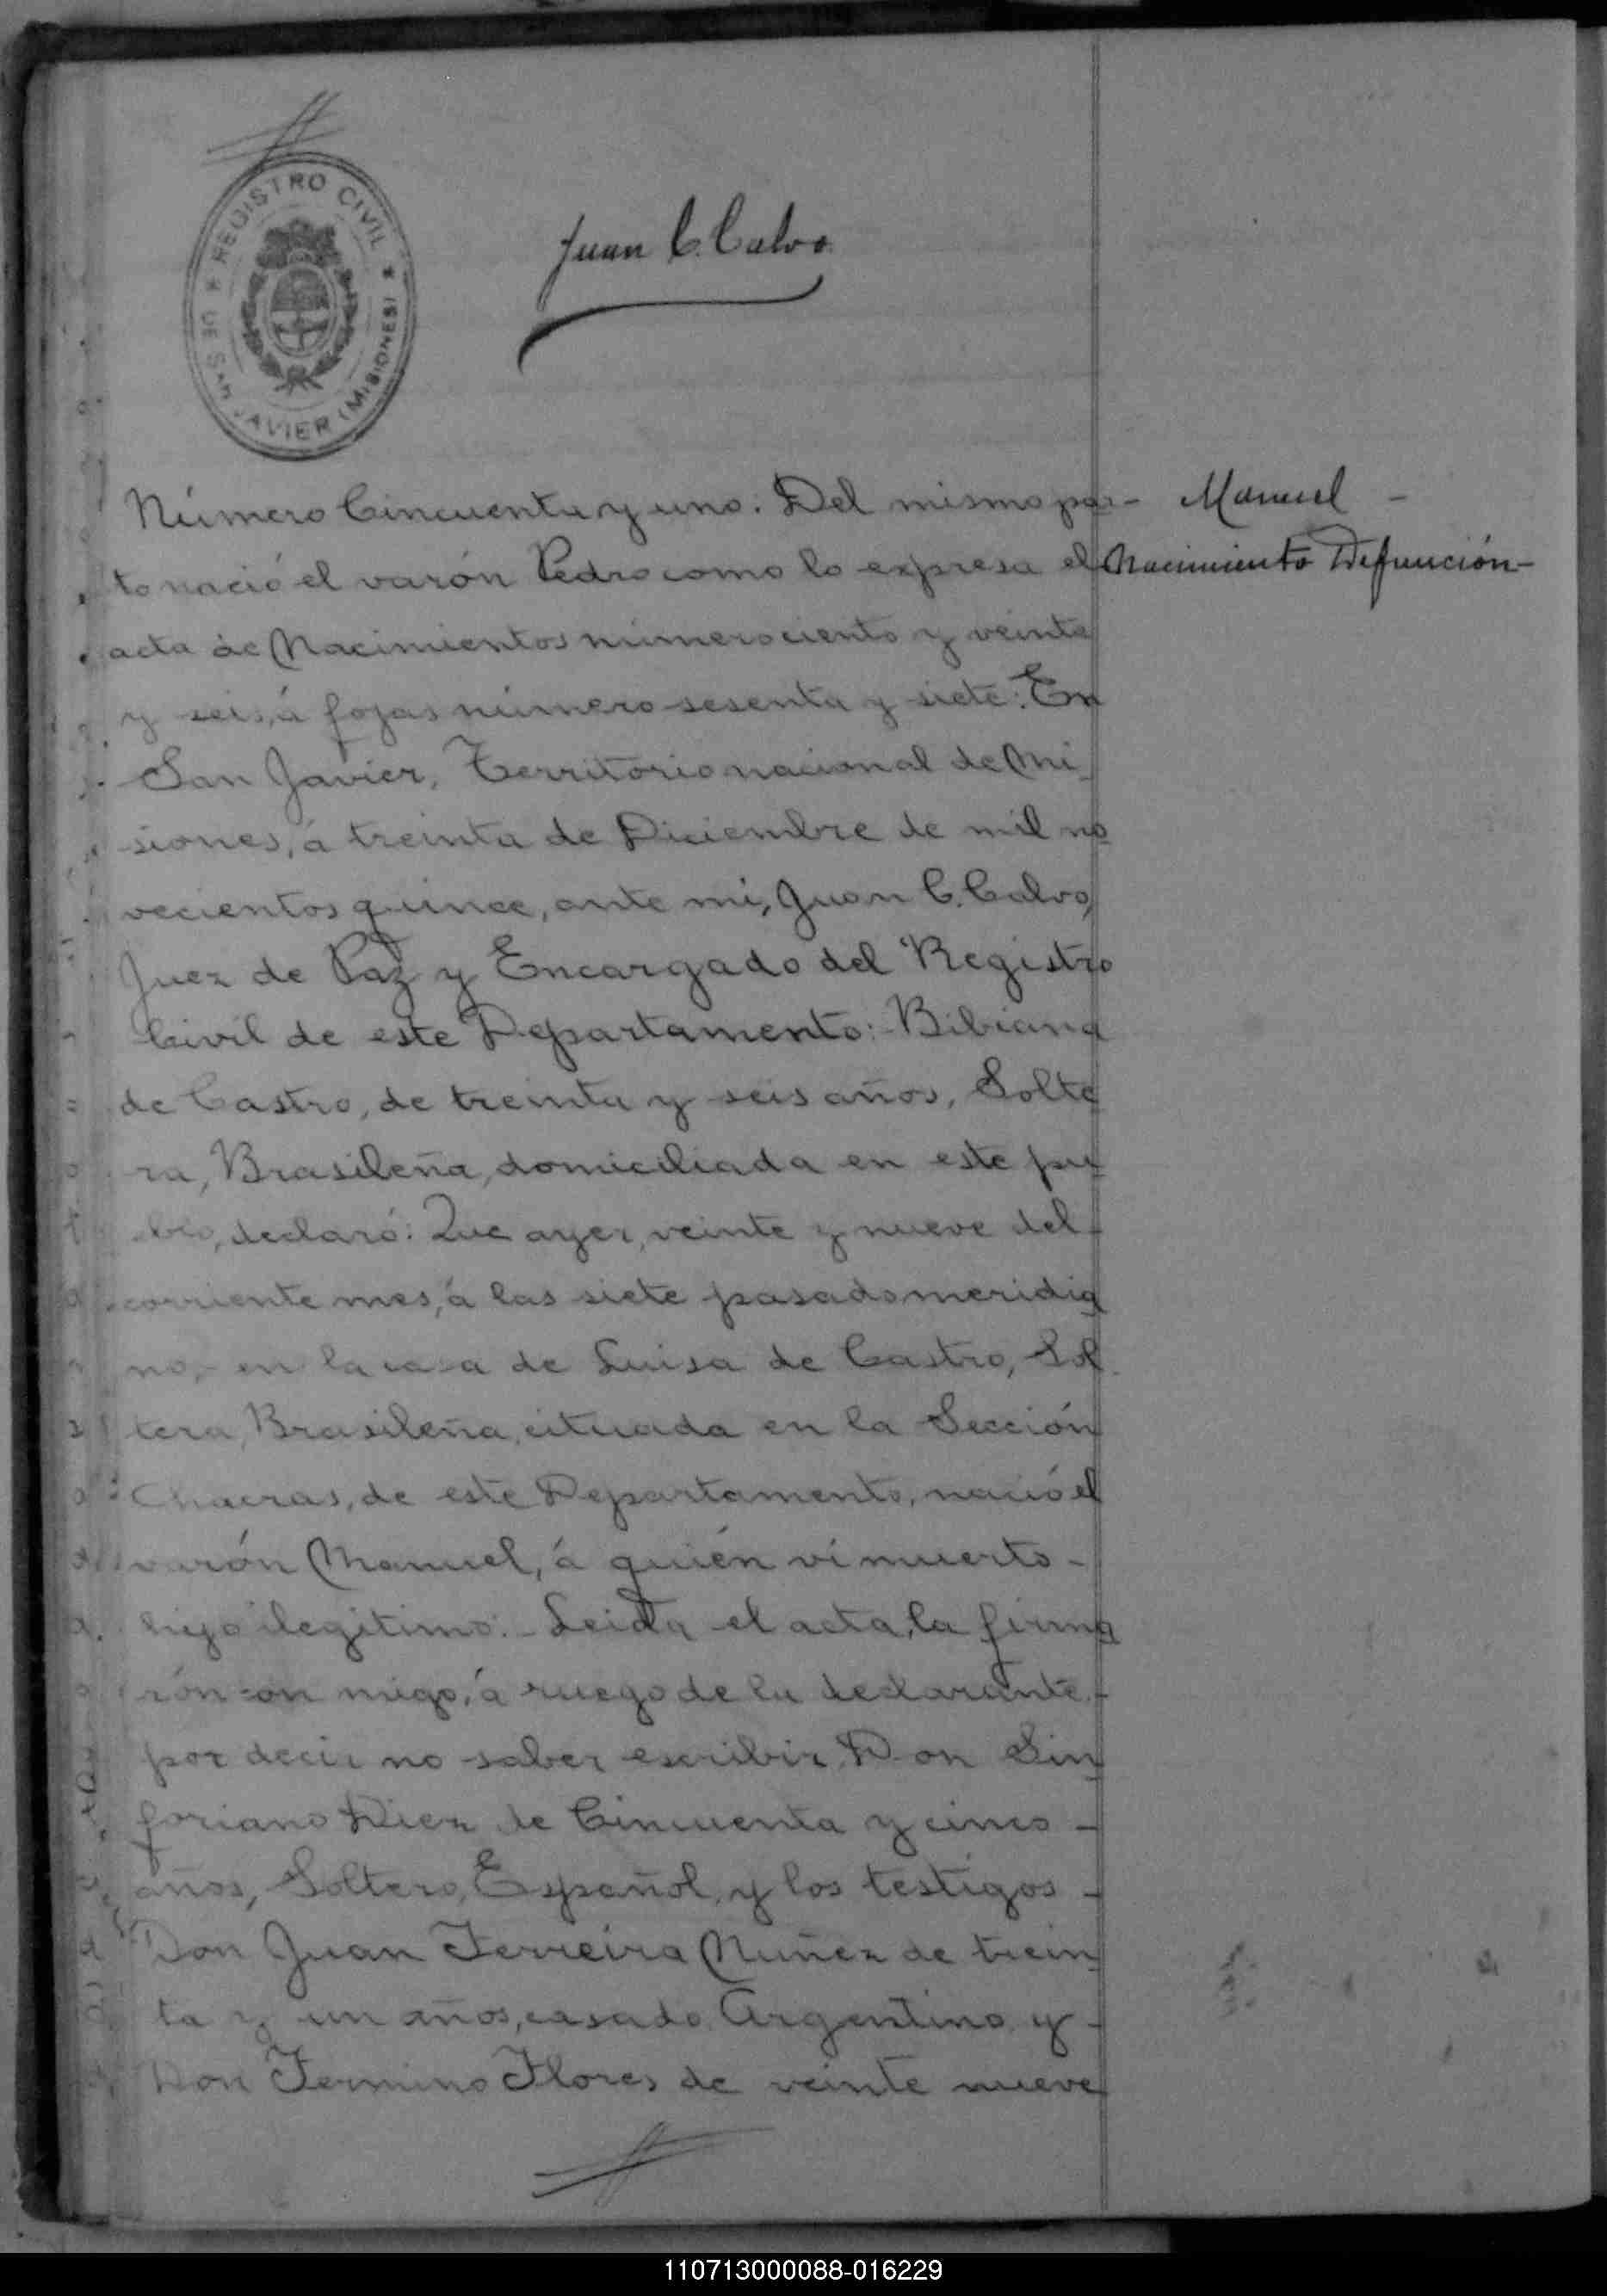 REGISTRO CIVIL
DE SAN JAVIER (MISIONES)
Juan C. Calvo
Número Cincuenta y uno: Del mismo par-
to nació el varón Pedro como lo expresa el
acta de Nacimientos número ciento y veinte
y seis, á fojas número sesenta y siete: En
San Javier, Territorio nacional de Mi
siones, á treinta de Diciembre de mil no
vecientos quince, ante mi, Juan C. Calvo,
Juez de Paz y Encargado del Registro
Civil de este Departamento: Bibiana
de Castro, de treinta y seis años, Solte
ra, Brasileña, domiciliada en este pu
eblo, declaró: Que ayer, veinte y nueve del-
corriente mes, á las siete pasado meridia
no, en la casa de Luisa de Castro, Sol
tera, Brasileña, cituada en la Sección
Chacras, de este Departamento, nació el
varón Manuel, á quién ví muerto-
hijo ilegitimo:- Leida el acta, la firma
rón con migo, á ruego de la declarante-
por decir no saber escribir, Don Sin
foriano Diez de Cincuenta y cinco-
años, Soltero, Español, y los testigos-
Don Juan Ferreira Nuñez de trein
ta y un años, casado, Argentino, y-
Don Fermino Flores de veinte nueve
Manuel -
Nacimiento Defunción-
110713000088-016229